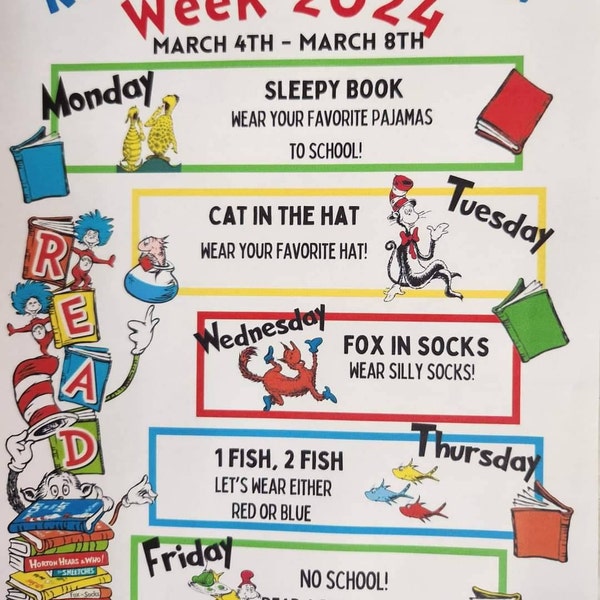 Week 2024
MARCH 4TH - MARCH 8TH
Monday
SLEEPY BOOK
WEAR YOUR FAVORITE PAJAMAS
TO SCHOOL!
Tuesday
CAT IN THE HAT
WEAR YOUR FAVORITE HAT!
Wednesday
FOX IN SOCKS
WEAR SILLY SOCKS!
Thursday
1 FISH, 2 FISH
LET'S WEAR EITHER
RED OR BLUE
Friday
NO SCHOOL!
READ
HORTON HEARS A WHO!
THE SNEETCHES
FOX IN SOCKS